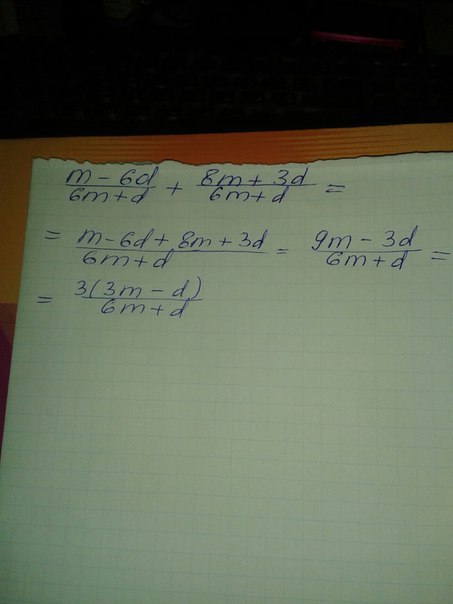 (m - 6d)/(6m + d) + (8m + 3d)/(6m + d) =
= (m - 6d + 8m + 3d)/(6m + d) = (9m - 3d)/(6m + d) =
= 3(3m - d)/(6m + d)